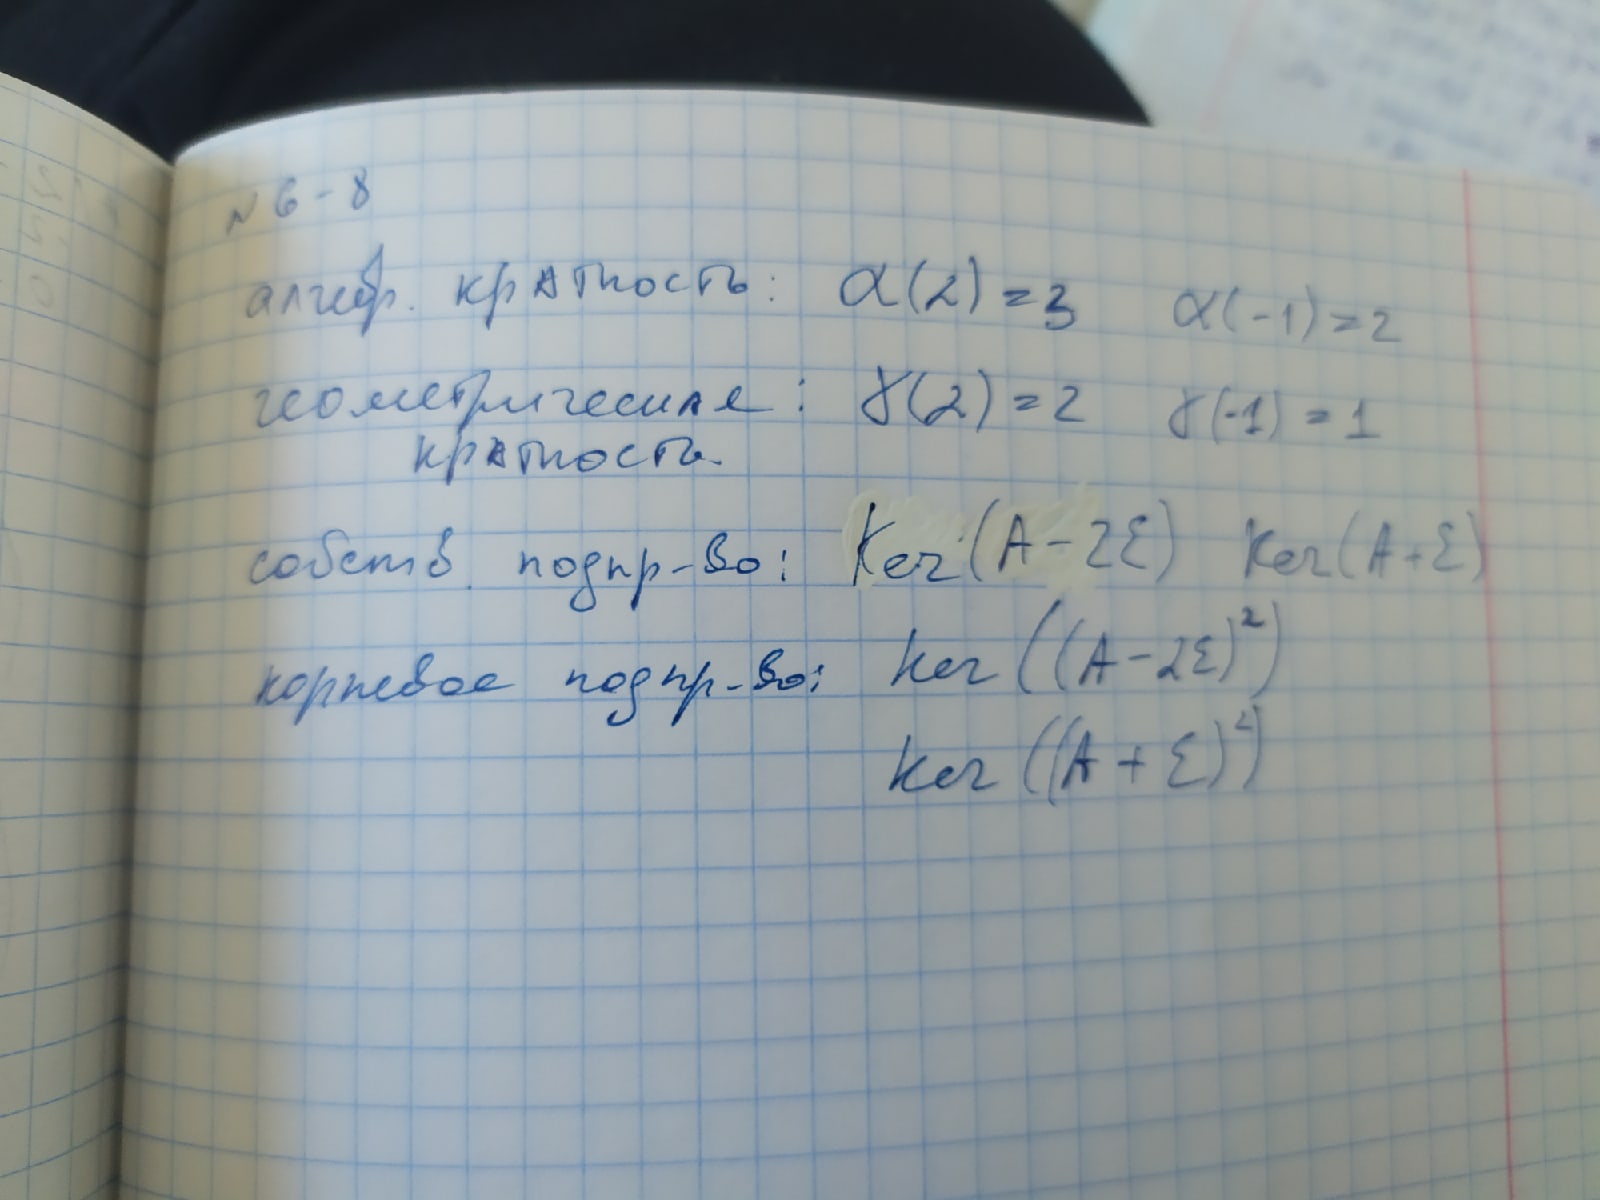 № 6-8
алгебр. кратность: α(2) = 3 α(-1) = 2
геометрическая: γ(2) = 2 γ(-1) = 1
кратность.
собств. подпр-во: Ker(A-2E) Ker(A+E)
корневое подпр-во: Ker((A-2E)²)
Ker((A+E)²)